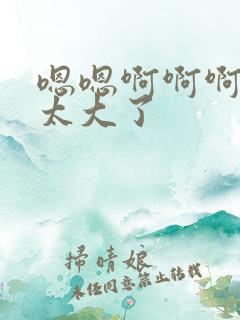 嗯嗯啊啊啊
太大了
掃晴娘
未经同意禁止转载